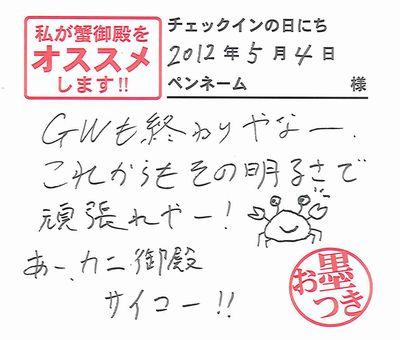 私が蟹御殿を
オススメ
します!!
チェックインの日にち
2012年5月4日
ペンネーム 様
GWも終わりやなー.
これからもその明るさで
頑張れやー!
あー、カニ御殿
サイコー!!
お墨つき